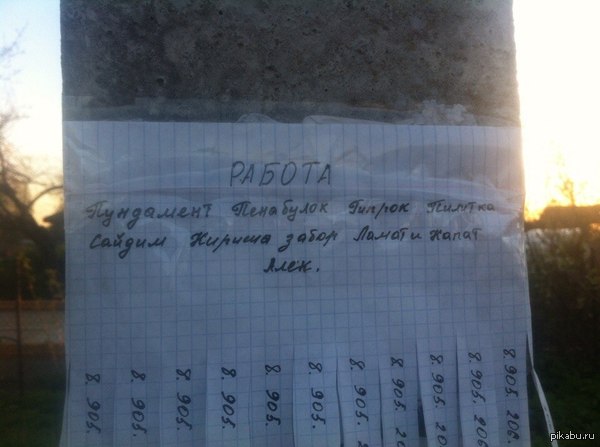 РАБОТА
Пундамент Пенабулок Гипрок Пилитка
Сайдим Кириша забор Ламат и Капат
Алек.
8. 905.
8. 905.
8. 905.
8. 905.
8. 905.
8. 905.
8. 905.
8. 905. 20
8. 905. 20
8. 905. 20
8. 905. 205
pikabu.ru